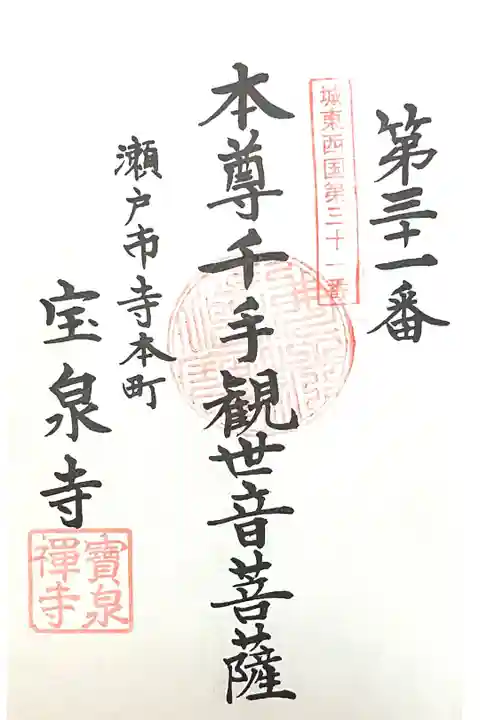 第三十一番
城東西国第三十一番
本尊千手観世音菩薩
瀬戸市寺本町
宝泉寺
寶泉
禪寺